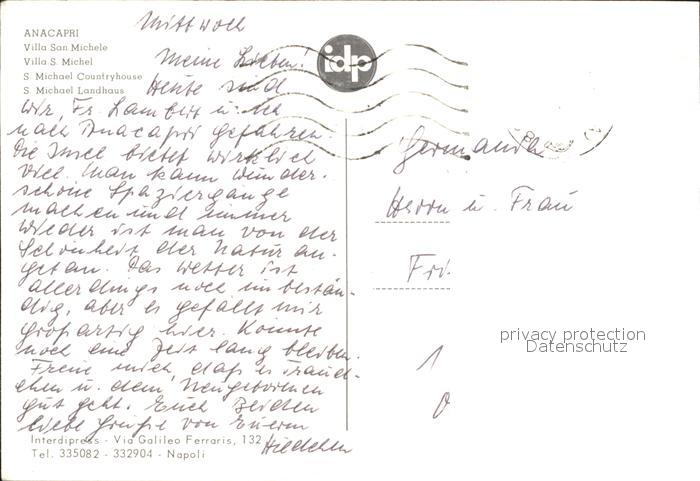 Mittwoch
ANACAPRI
Villa San Michele
Villa S. Michel
S. Michael Countryhouse
S. Michael Landhaus
idp
Meine Lieben!
Heute sind
wir, Fr. Lambert u. ich
nach Anacapri gefahren.
Die Insel bietet wirklich
viel. Man kann wunder-
schöne Spaziergänge
machen und immer
wieder ist man von der
Schönheit der Natur an-
getan. Das Wetter ist
allerdings noch unbestän-
dig, aber es gefällt mir
großartig hier. Könnte
noch eine Zeit lang bleiben.
Freue mich, daß es Traud-
chen u. dem Neugeborenen
gut geht. Euch Beiden
liebe Grüße von Euerm
Hildchen
Germania
Herrn u. Frau
Fri.
privacy protection
Datenschutz
1
Interdipress - Via Galileo Ferraris, 132
Tel. 335082 - 332904 - Napoli